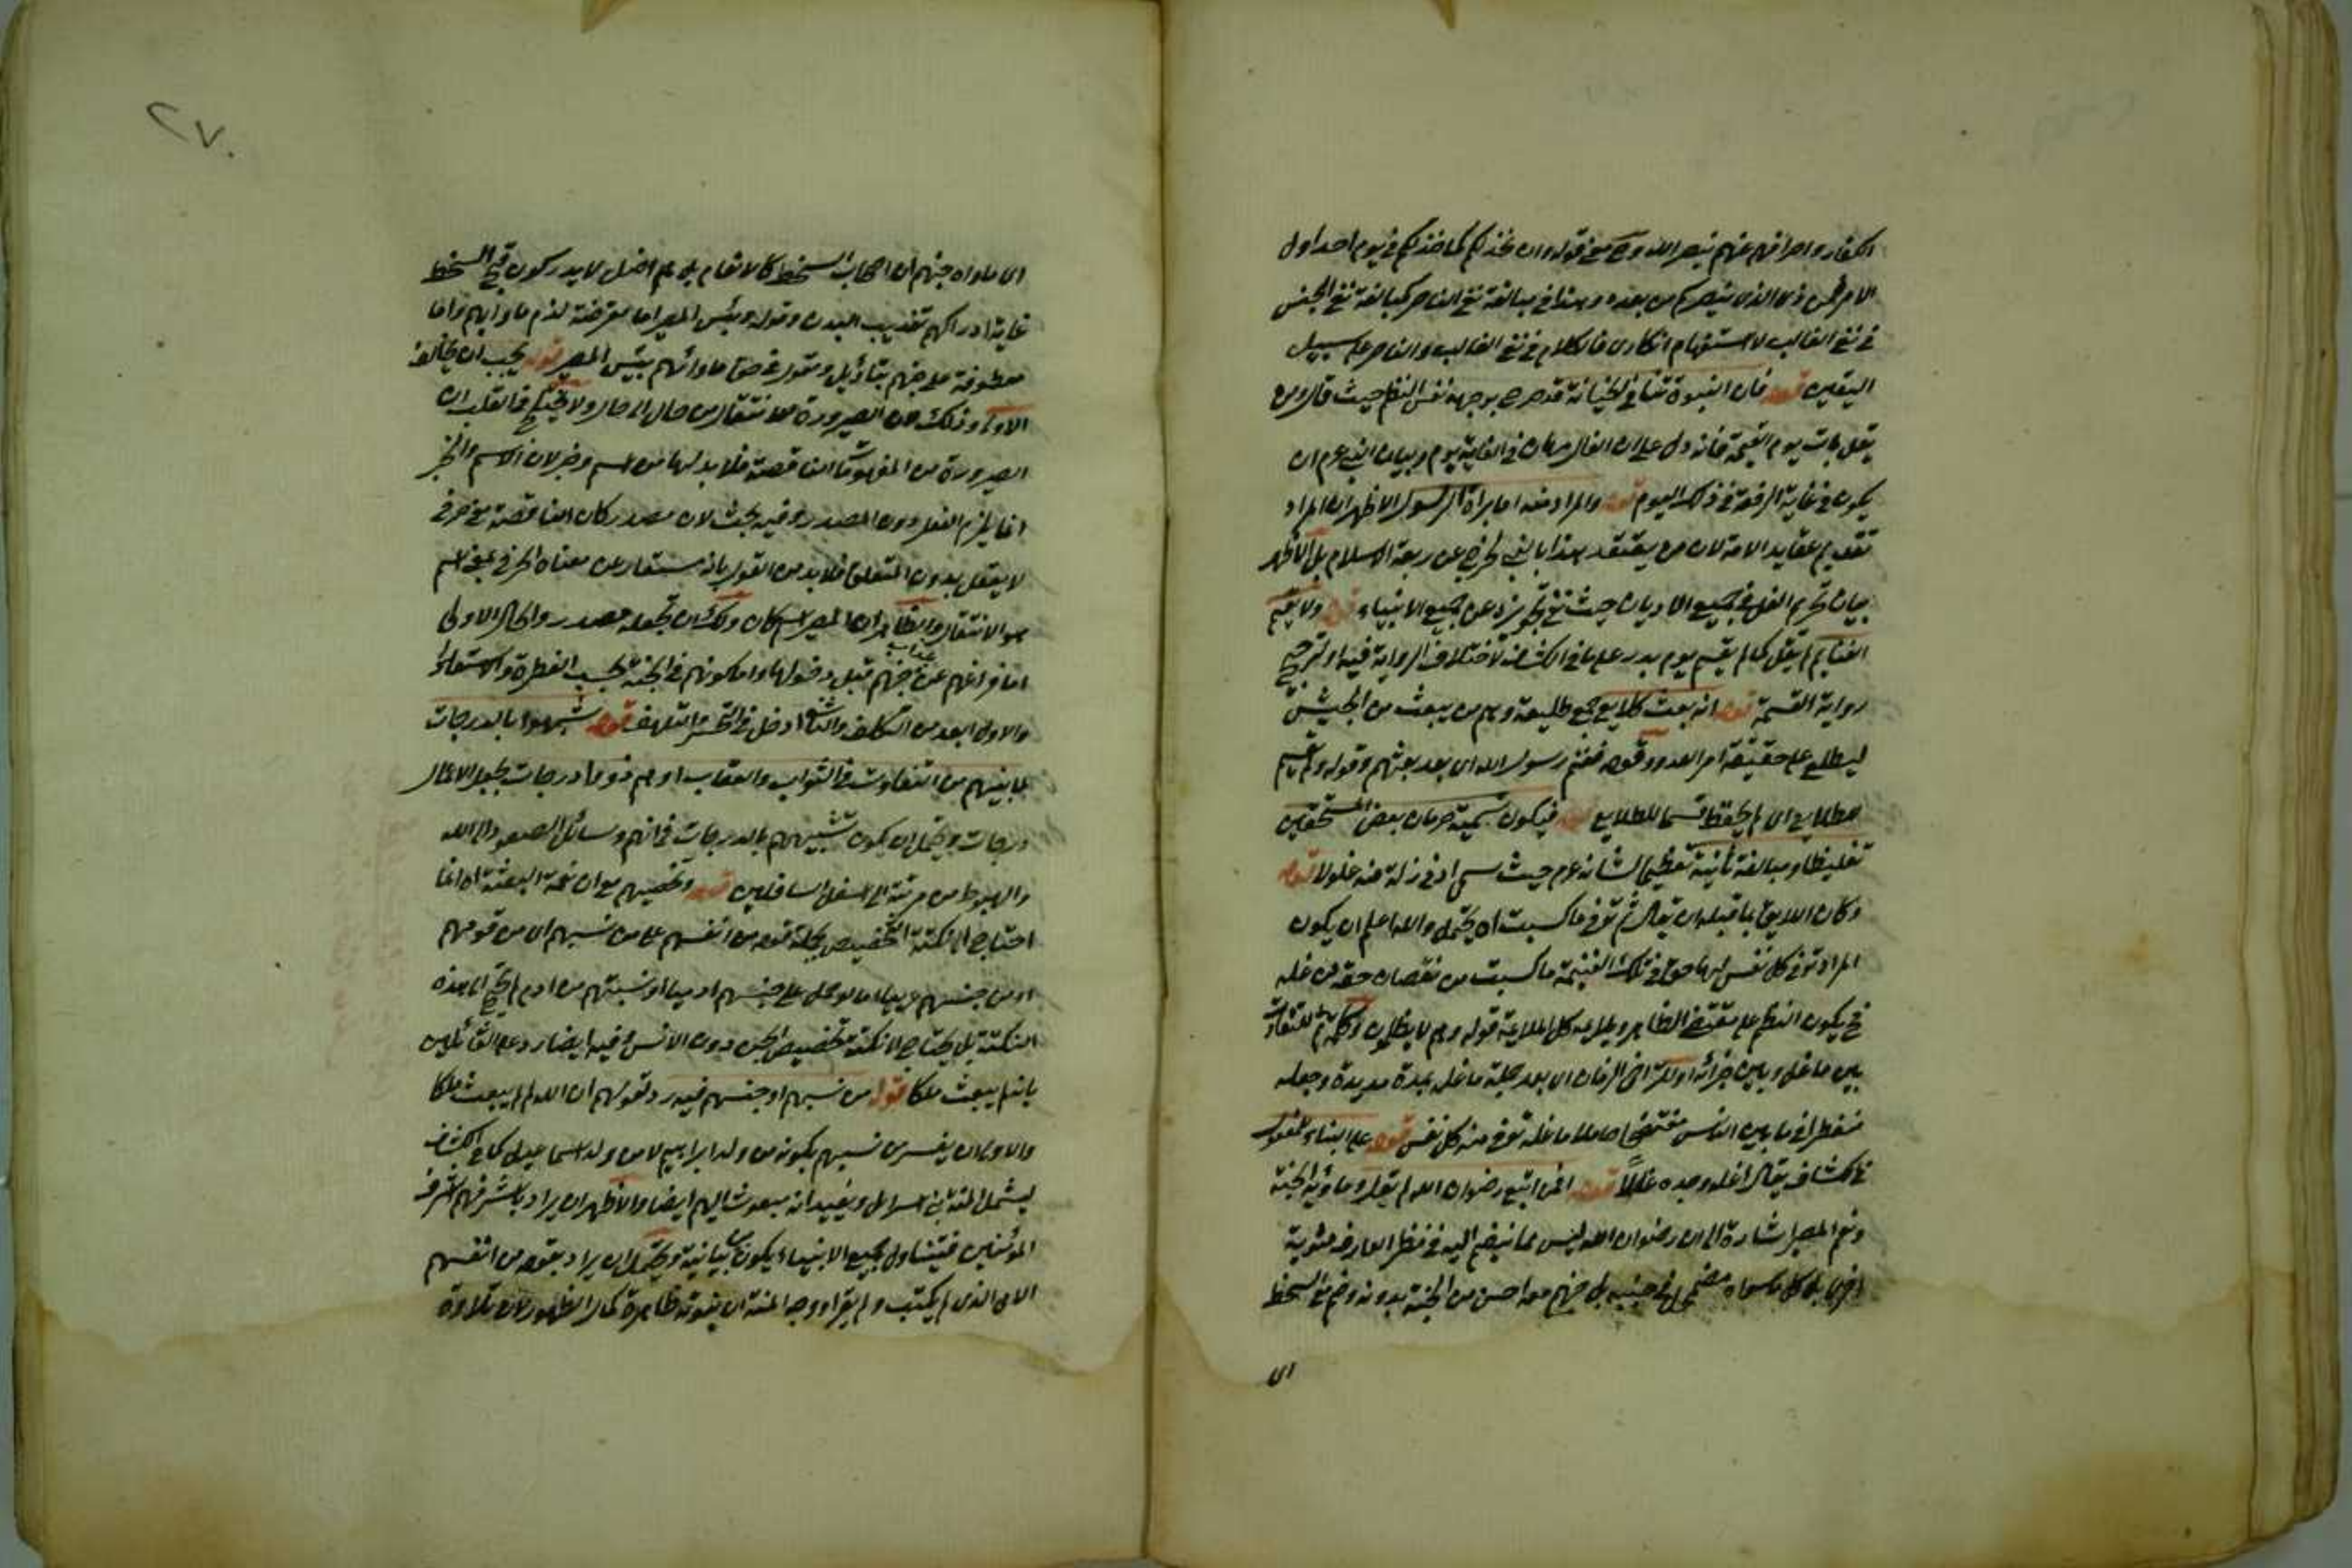 الكفار واصرافهم عنهم بنصر الله و معنى قوله وان يخذلكم كما خذلكم في يوم احد اول
الامر فمن ذا الذي ينصركم من بعده وهذا في مبالغة نفي الناصر كمبالغة نفي الجنس
في نفي الغالب لاستفهام انكاري فالكلام في نفي الغالب والناصر على سبيل
اليقين قوله فان النبوة تنافي الخيانة قد صرح بوجهه نفس النظم حيث قال ومن
يغلل يات يوم القيمة فانه دل على ان الغال مهان في الغاية يوم وبيان النبي عم ان
يكون في غاية الرفعة في ذلك اليوم قوله والمراد منه اما براة الرسول الاظهر ان المراد
تقديم عقايد الامة لان من يعتقد هذا بالنبي يخرج عن ربقة الاسلام بل الاظهر
بيان تحريم الغل في جميع الاديان حيث نفي تجويزه عن جميع الانبياء قوله ولا يقسم
الغنايم لم يقل كما لم يقسم يوم بدر على ما في الكشاف لاختلاف الرواية فيه او ترجيح
رواية القسمة قوله انه بعث طلايع جمع طليعة وهم من يبعث من الجيش
ليطلع على حقيقة امر العدو وقوله فغنم رسول الله اي بعد بعثهم وقوله ولم يقسم
للطلايع اي لم يحفظ قسما للطلايع قوله فيكون تسمية حرمان بعض المستحقين
تغليظا ومبالغة ثانية تعظيما لشانه عم حيث سمى ادنى زلة منه غلولا قوله
وكان اللايق بما قبله ان يقال ثم توفى ما كسبت اه يحتمل والله اعلم ان يكون
المراد توفى كل نفس لها حق في تلك الغنيمة ما كسبت من نقصان حقه من غله
فح يكون النظم على مقتضى الظاهر ويلايمه كل الملايمة قوله وهم لا يظلمون وكلمة ثم للتفاوت
بين ما غل وبين جزائه او للتراخي الزمان اي بعد حمله ما غل بمدة مديدة وجعله
منتظرا فيما بين الناس مفتضحا حاملا ما غله توفى منه كل نفس قوله على البناء للمفعول
في الكشاف يقال اغله وجده غالا قوله افمن اتبع رضوان الله لم يقل وماويه الجنة
ونعم المصير اشارة الى ان رضوان الله ليس مما ينضم اليه في نظر العارف مثوبة
اخرى بل كل ما سواه مضمحل في جنبه بل جهنم معه احسن من الجنة بدونه وضم مع السخط
اى
٢٧٠
اى ماواه جهنم لان اصحاب السخط كالانعام بل هم اضل لا يدركون قبح السخط
غاية ادراكهم تعذيب البدن وقوله وبئس المصير اما معترضة لذم ماواهم واما
معطوفة على جهنم بتاويل ومقول في حق ماواهم بئس المصير قوله يجب ان يخالف
الاولى وذلك لان الصيرورة الانتقال من حال الى حال ولا يخفى ما فيه لقلب ان
الصيرورة من المفهومات الناقصة فلا بد لها من اسم وخبر لان الاسم والخبر
انما يلزم الفعل دون المصدر وفيه بحث لان مصدر كان الناقصة معنى حرفي
لا يعقل بدون المتعلق فلا بد من القول بانه مستعار من معناه الحرفي لمعنى اسم
هو الانتقال والظاهر ان المصير اسم مكان ولك ان تجعله مصدر والحال الاولى
اما فراغهم عن عذاب جهنم قبل دخولها واما كونهم في الجنة بحسب الفطرة والاستعداد
والاول ابعد من التكلف والثاني ادخل في التحسر والتلهف قوله شبهوا بالدرجات
لما بينهم من التفاوت في الثواب والعقاب او هم ذووا درجات بجعل الاعمال
درجات ويحتمل ان يكون تشبيههم بالدرجات في انهم وسائل الصعود الى الله
والهبوط من مرتبة الى اسفل السافلين قوله وتخصيصهم مع ان نعمة البعثة اه انما
احتاج الى نكتة التخصيص بحمله قوله من انفسهم على من نسبهم اي من قومهم
او من جنسهم عربيا اما لو حمل على جنسهم ادميا او نسبتهم من ادم لم يحتج الى هذه
النكتة بل يحتاج الى نكتة تخصيص الجن دون الانس وفيه ايضا رد على القائلين
بانه لم يبعث ملكا قوله من نسبهم او جنسهم فيه رد لقولهم ان الله لم يبعث ملكا
والاولى ان يفسر من نسبهم بكونه من ولد ابراهيم لا من ولد اسماعيل كما في الكشاف
ليشمل المنة بني اسرائيل ويفيد انه مبعوث اليهم ايضا والاظهر ان يراد باشرفهم اشرف
المؤمنين فيتناول جميع الانبياء ويكون من بيانية ويحتمل ان يراد بقوله من انفسهم
الامي الذي لم يكتب ولم يقرا ووجه المنة ان نبوته ظاهرة كمال الظهور لان تلاوة